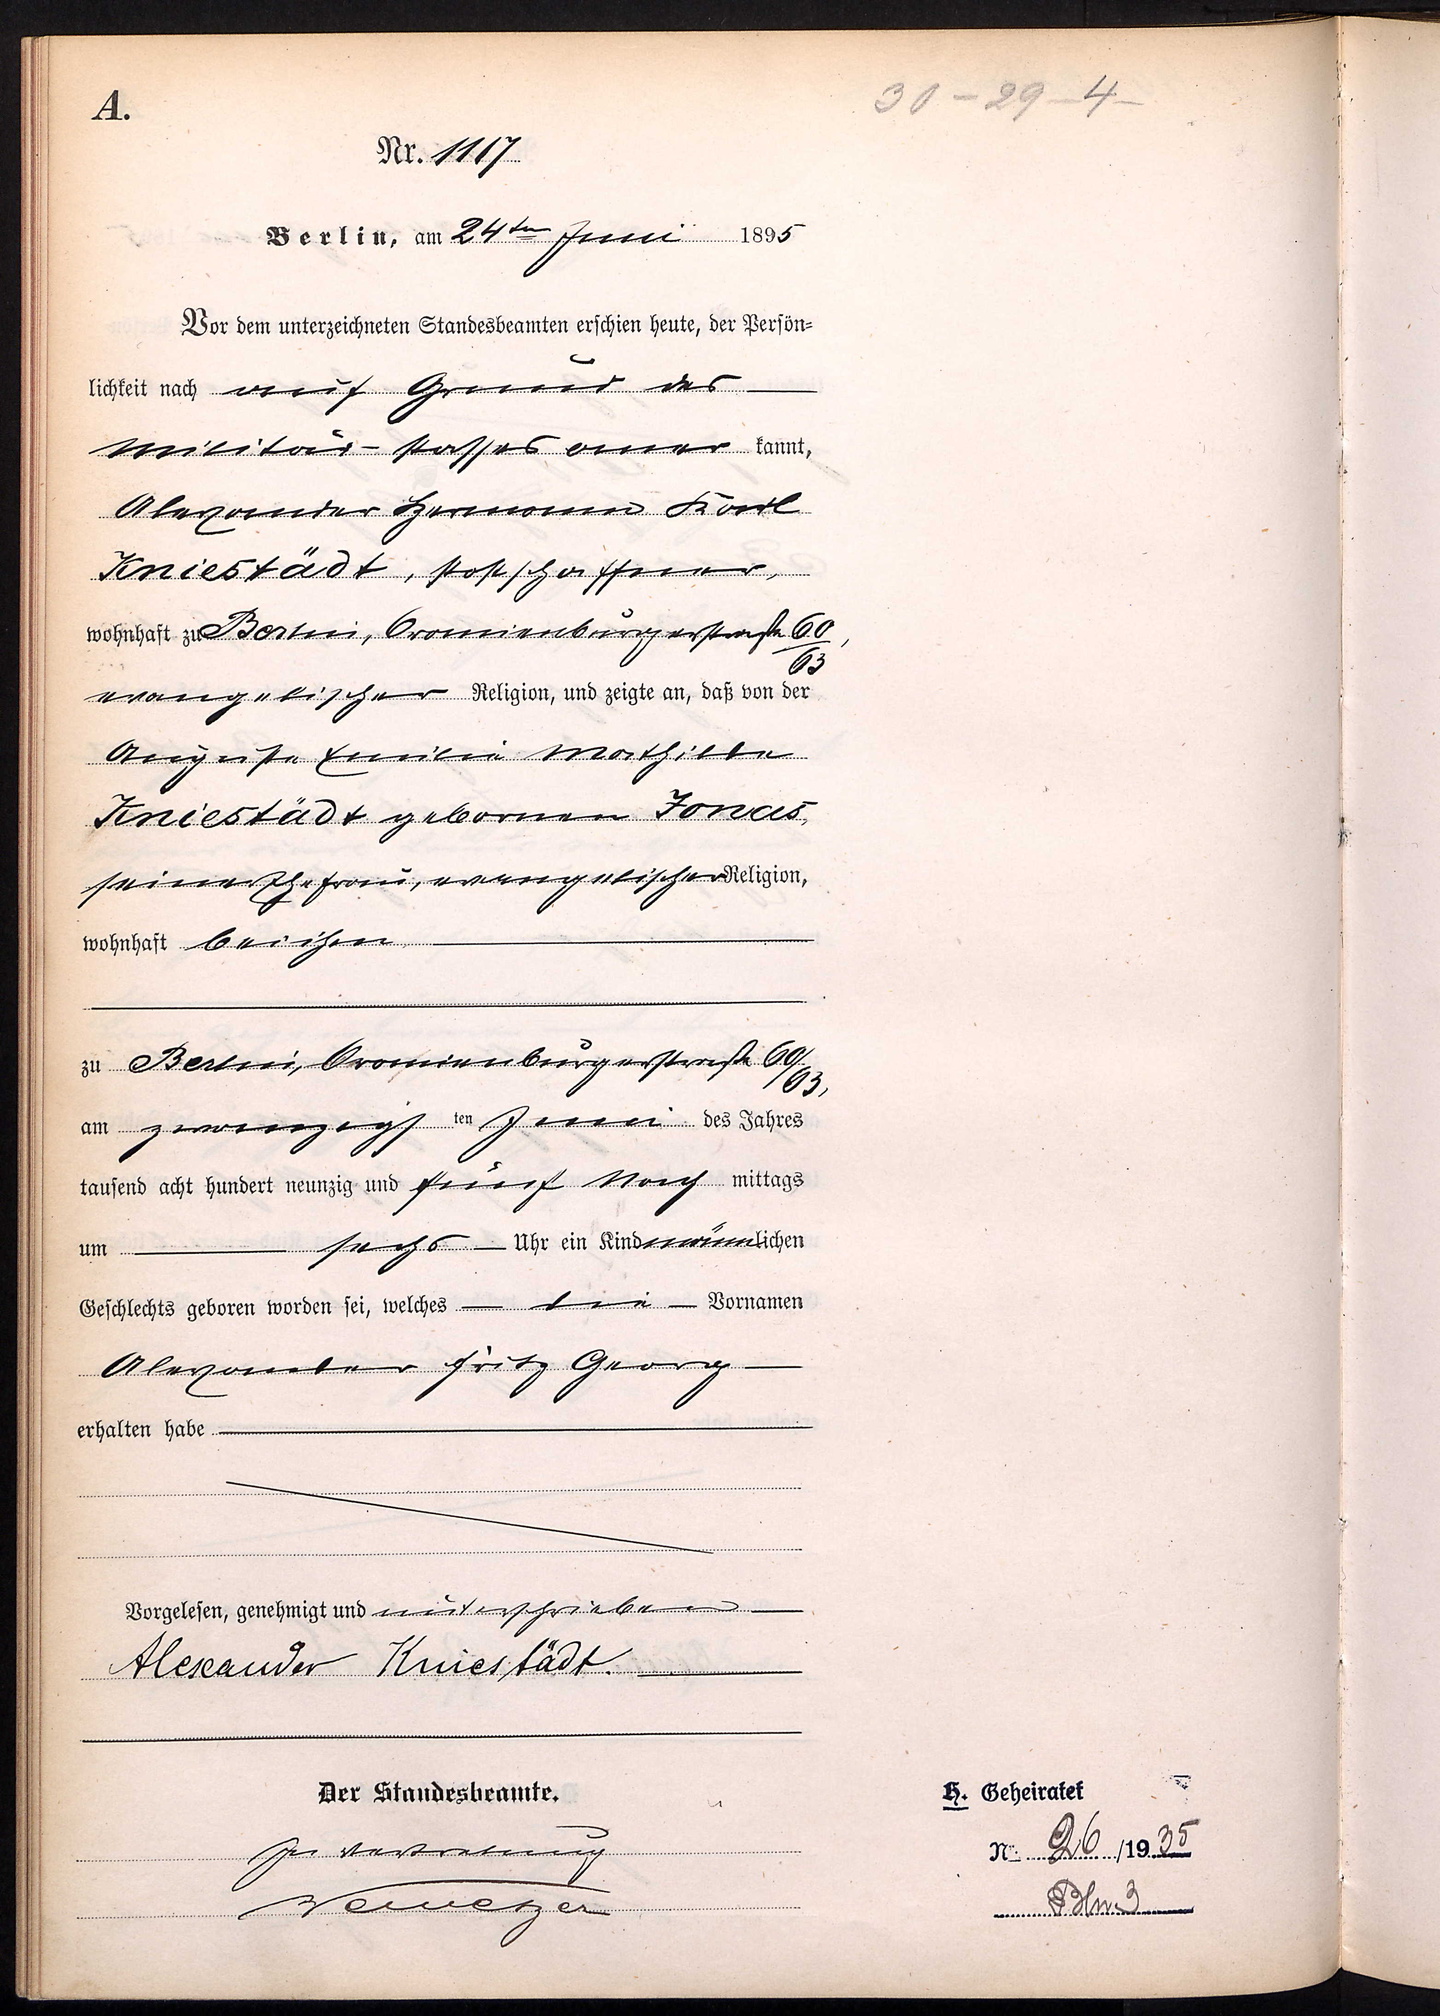 30-29-4-
A.
Nr. 1117
Berlin, am 24ten Juni 1895
Vor dem unterzeichneten Standesbeamten erschien heute, der Persön=
lichkeit nach auf Grund des
Militär-Passes aner kannt,
Alexander Hermann Karl
Kniestädt, Postschaffner,
wohnhaft zu Berlin, Oranienburgerstraße 60/63,
evangelischer Religion, und zeigte an, daß von der
Auguste Emilie Mathilde
Kniestädt gebornen Jonas,
seiner Ehefrau, evangelischer Religion,
wohnhaft bei ihm
zu Berlin, Oranienburgerstraße 60/63,
am zwanzigs ten Juni des Jahres
tausend acht hundert neunzig und fünf Nach mittags
um sechs Uhr ein Kind männlichen
Geschlechts geboren worden sei, welches die Vornamen
Alexander Fritz Georg
erhalten habe
Vorgelesen, genehmigt und unterschrieben
Alexander Kniestädt.
Der Standesbeamte.
In Vertretung
H. Geheiratet
No. 26/1935
Bln. 3